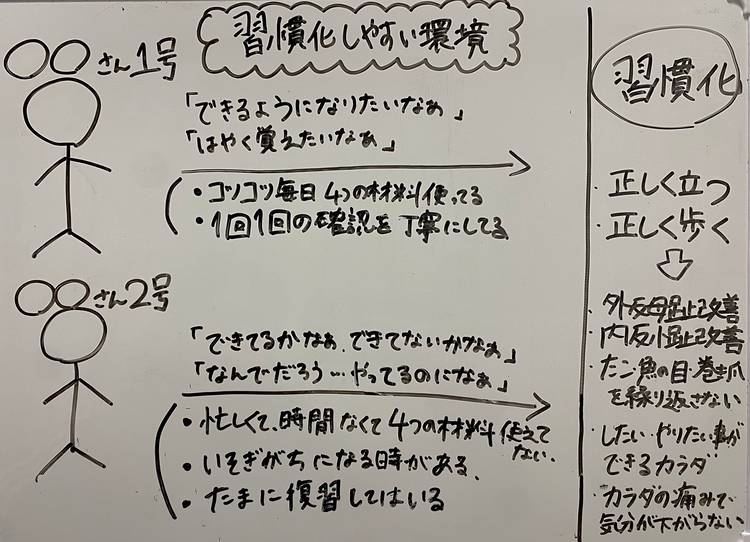 習慣化しやすい環境
○○さん1号
「できるようになりたいなぁ」
「はやく覚えたいなぁ」
・コツコツ毎日4つの材料使ってる
・1回1回の確認を丁寧にしてる
○○さん2号
「できてるかなぁ、できてないかなぁ」
「なんでだろう…やってるのになぁ」
・忙しくて、時間なくて4つの材料使えてない.
・いそぎがちになる時がある.
・たまに復習してはいる
習慣化
・正しく立つ
・正しく歩く
⇩
・外反母趾改善
・内反小趾改善
・たこ・魚の目・巻き爪
を繰り返さない
・したい・やりたい事が
できるカラダ
・カラダの痛みで
気分が下がらない